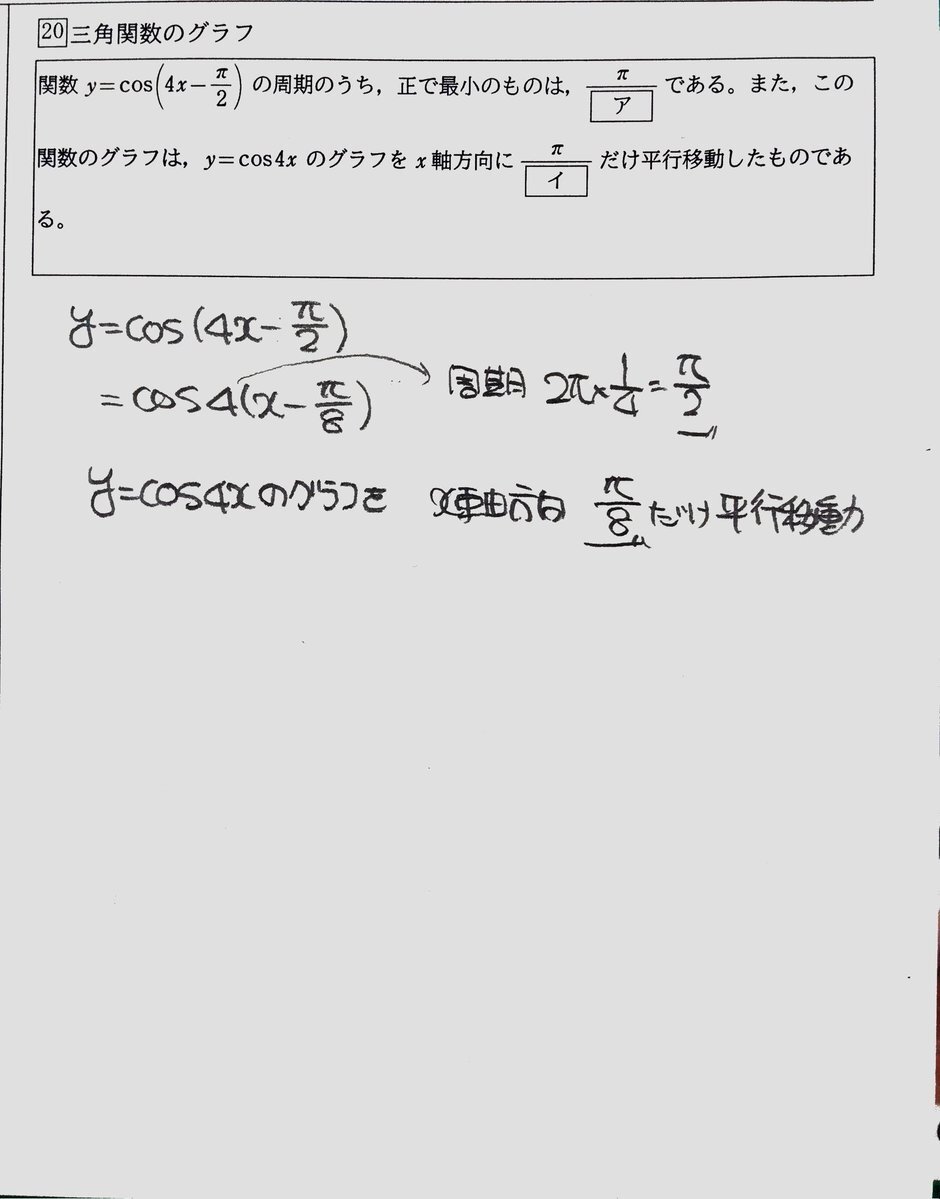 20 三角関数のグラフ
関数 y=cos(4x−π/2) の周期のうち，正で最小のものは， π/ア である。また，この
関数のグラフは，y=cos4x のグラフを x 軸方向に π/イ だけ平行移動したものであ
る。
y=cos(4x−π/2)
=cos4(x−π/8) 周期 2π×1/4=π/2
y=cos4xのグラフを x軸方向 π/8 だけ平行移動